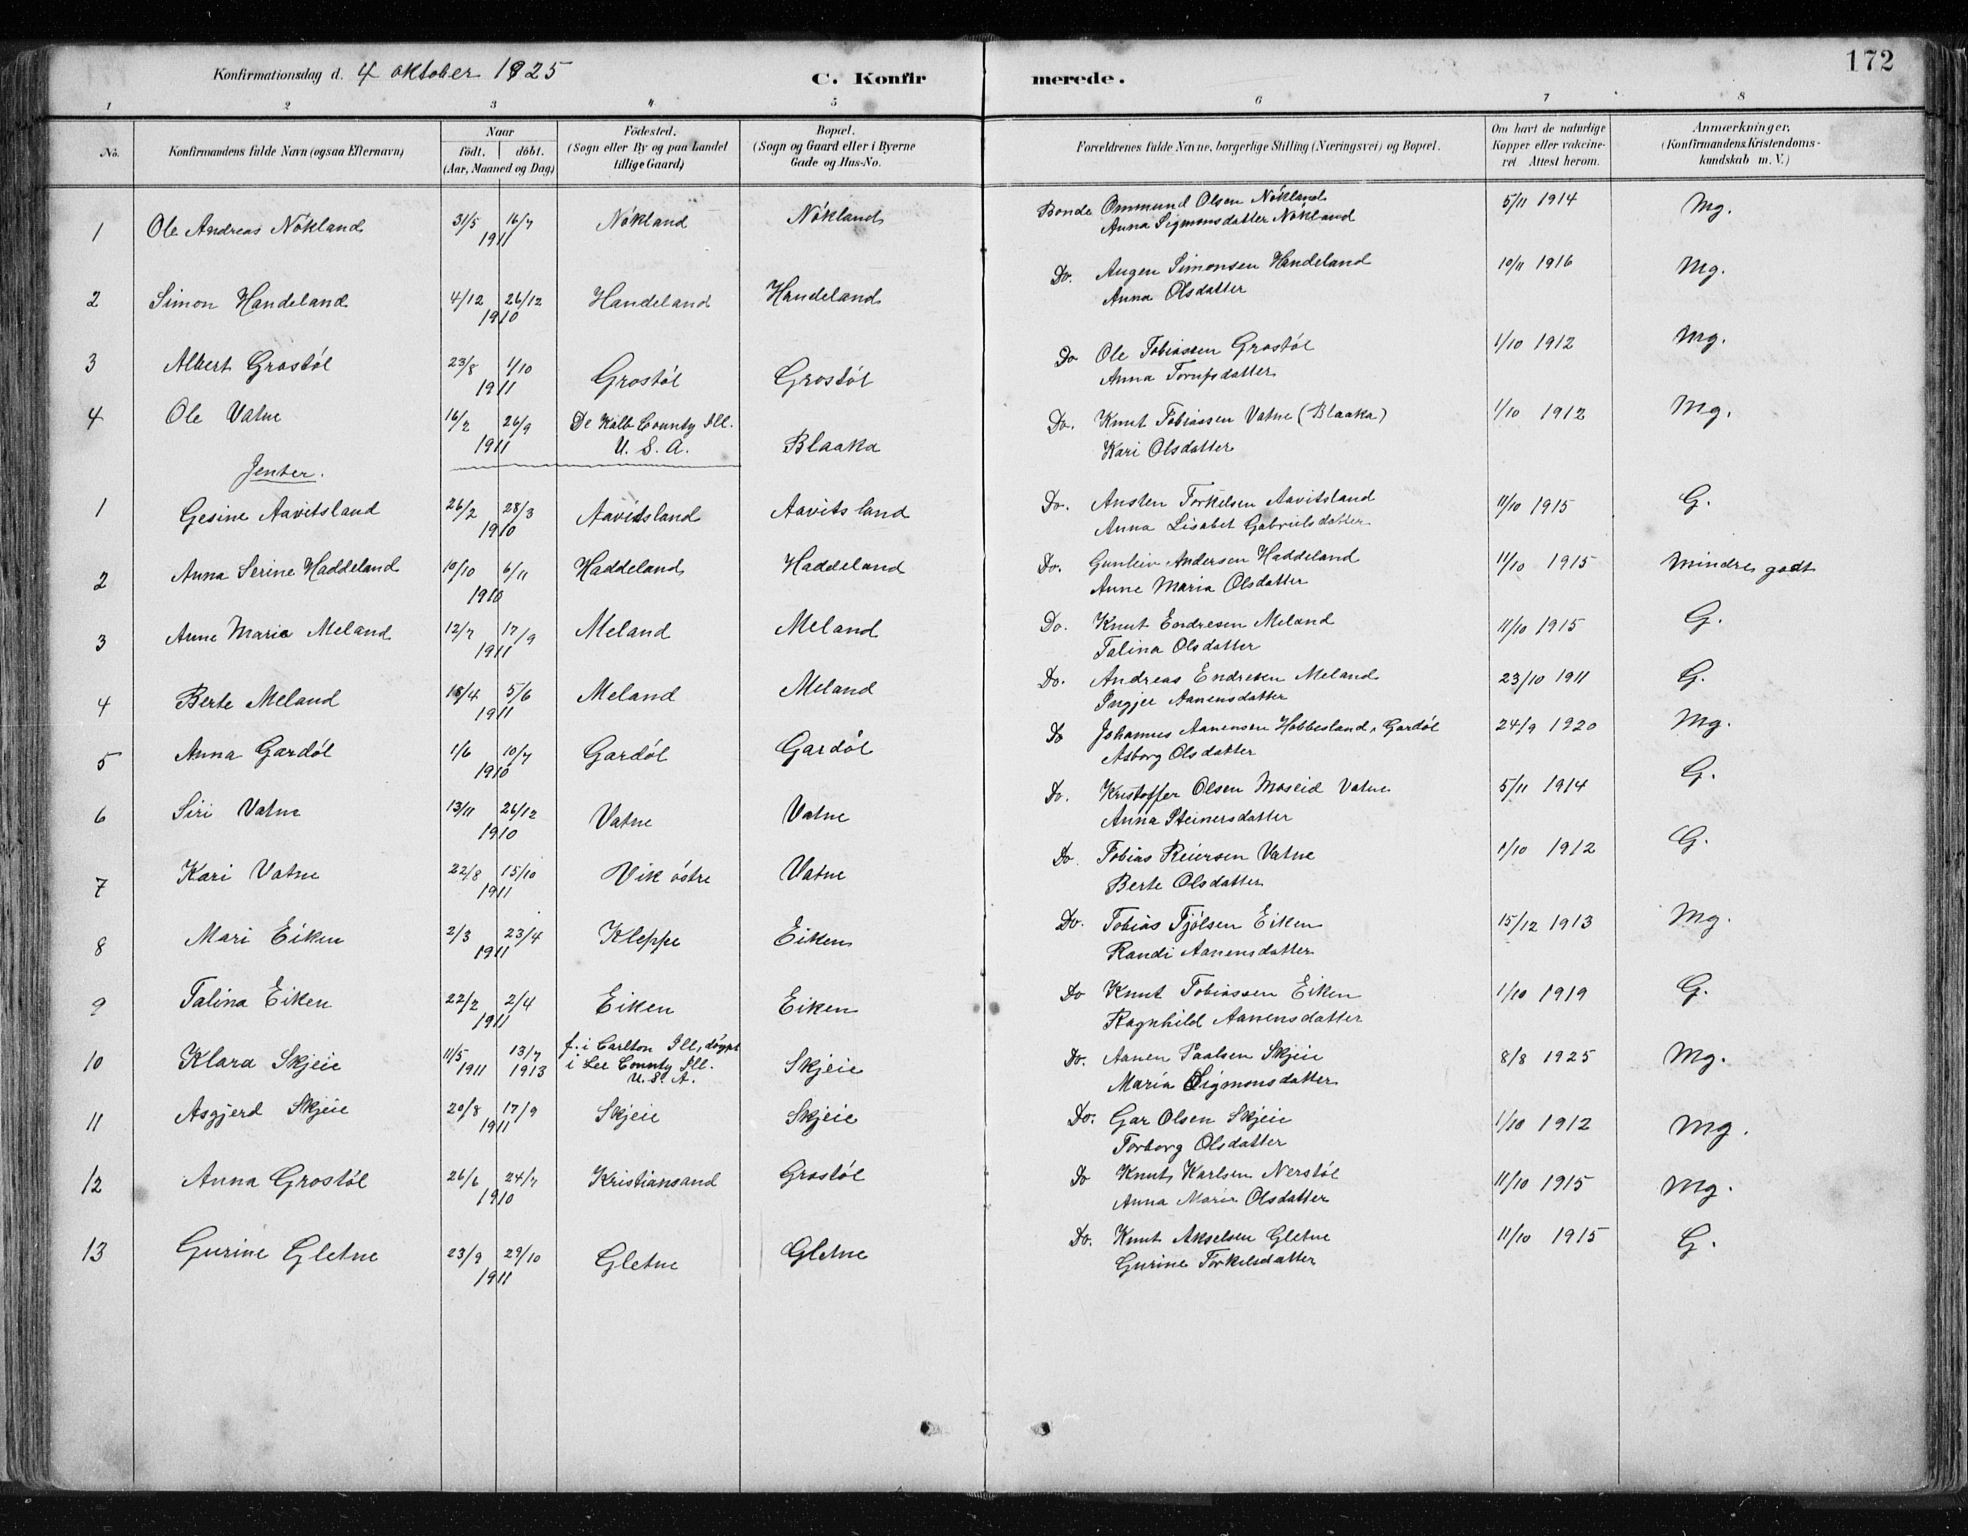 172
Konfirmationsdag d. 4 oktober 1925
C. Konfirmerede.
1 2 3 4 5 6 7 8
No.
Konfirmandens fulde Navn (ogsaa Efternavn)
Naar
födt. döbt.
(Aar, Maaned og Dag)
Födested.
(Sogn eller By og paa Landet
tillige Gaard)
Bopæl.
(Sogn og Gaard eller i Byerne
Gade og Hus-No.
Forældrenes fulde Navne, borgerlige Stilling (Næringsvei) og Bopæl.
Om havt de naturlige
Kopper eller vakcine-
ret Attest herom.
Anmærkninger.
(Konfirmandens Kristendoms-
kundskab m. V.)
1 Ole Andreas Nökland 31/5 16/7 Nökland Nökland Bonde Ommund Olsen Nökland 5/11 1914 Mg.
1911 Anna Sigmonsdatter Nökland
2 Simon Handeland 4/12 26/12 Handeland Handeland Do. Augen Simonsen Handeland 10/11 1916 Mg.
1910 Anna Olsdatter
3 Albert Grostöl 23/8 1/10 Grostöl Grostöl Do Ole Tobiassen Grostöl 1/10 1912 Mg.
1911 Anna
4 Ole Vatne 16/2 26/9 De Kalb County Ill. Blaaka Do. Knut Tobiassen Vatne (Blaaka) 1/10 1912 Mg.
1911 U. S. A. Kari Olsdatter
Jenter.
1 Gesine Aavitsland 26/2 28/3 Aavitsland Aavitsland Do. Ansten Torkelsen Aavitsland 11/10 1915 G.
1910 Anna Lisabet Gabrielsdatter
2 Anna Serine Haddeland 10/10 6/11 Haddeland Haddeland Do. Gunleiv Andersen Haddeland 11/10 1915 mindre godt
1910 Anne Maria Olsdatter
3 Anne Marie Meland 12/7 17/9 Meland Meland Do. Knut Endresen Meland 11/10 1915 G.
1911 Talina Olsdatter
4 Berte Meland /4 5/6 Meland Meland Do. Andreas Endresen Meland 23/10 1911 G.
1911 Ingjer Aanensdatter
5 Anna Gardöl 1/6 10/7 Gardöl Gardöl Do Johannes Aanensen Hobbesland, Gardöl 24/9 1920 Mg.
1910 Asborg Olsdatter
6 Siri Vatne 13/11 26/12 Vatne Vatne Do. Kristoffer Olsen Moseid Vatne 5/11 1914 G.
1910 Anna Steinersdatter
7 Kari Vatne 22/8 15/10 Vik östre Vatne Do Tobias Reiersen Vatne 1/10 1912 G.
1911 Berte Olsdatter
8 Mari Eiken 2/3 23/4 Kleppe Eiken Do. Tobias Tjölsen Eiken 15/12 1913 Mg.
1911 Randi Aanensdatter
9 Talina Eiken 22/2 2/4 Eiken Eiken Do Knut Tobiassen Eiken 1/10 1919 G.
1911 Ragnhild Aanensdatter
10 Klara Skjeie 11/5 1911 13/7 1913 f. i Carlton Ill., döypt Skjeie Do. Aanen Paalsen Skjeie 8/8 1925 Mg.
i Lee County Ill. Maria Sigmonsdatter
U. S. A.
11 Asgjerd Skjeie 20/8 17/9 Skjeie Skjeie Do. Gar Olsen Skjeie 1/10 1912 Mg.
1911 Torborg Olsdatter
12 Anna Grostöl 26/6 24/7 Kristiansand Grostöl Do Knut Karlsen Nerstöl 11/10 1915 Mg.
1910 Anna Marie Olsdatter
13 Gurine Gletne 23/9 29/10 Gletne Gletne Do. Knut Akselsen Gletne 11/10 1915 G.
1911 Gurine Torkelsdatter